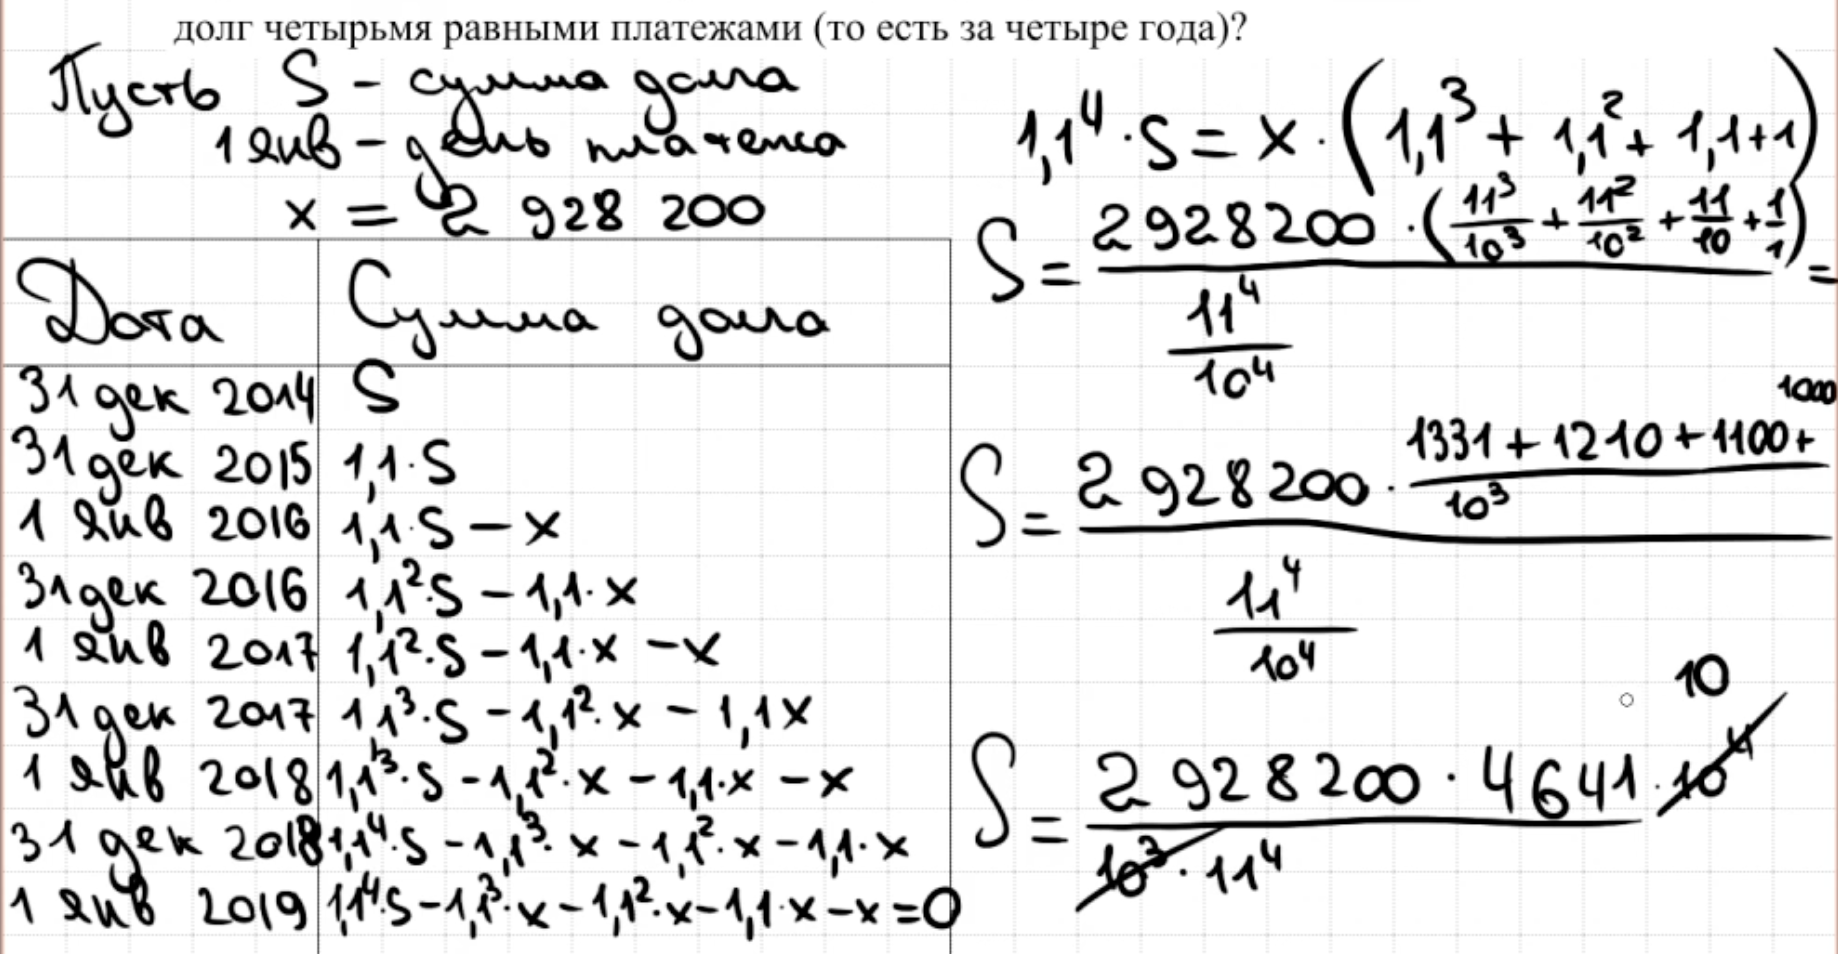 долг четырьмя равными платежами (то есть за четыре года)?
Пусть S - сумма долга
1 янв - день платежа
x = 2 928 200
Дата Сумма долга
31 дек 2014 S
31 дек 2015 1,1·S
1 янв 2016 1,1·S - x
31 дек 2016 1,1²·S - 1,1·x
1 янв 2017 1,1²·S - 1,1·x - x
31 дек 2017 1,1³·S - 1,1²·x - 1,1x
1 янв 2018 1,1³·S - 1,1²·x - 1,1·x - x
31 дек 2018 1,1⁴·S - 1,1³·x - 1,1²·x - 1,1·x
1 янв 2019 1,1⁴·S - 1,1³·x - 1,1²·x - 1,1·x - x = 0
1,1⁴·S = x·(1,1³ + 1,1² + 1,1 + 1)
S = 2928200·(11³/10³ + 11²/10² + 11/10 + 1/1)
11⁴/10⁴ =
1000
S = 2 928 200 · 1331 + 1210 + 1100 +
10³
11⁴
10⁴
10
S = 2 928 200 · 4641 · 10⁴
10³ · 11⁴